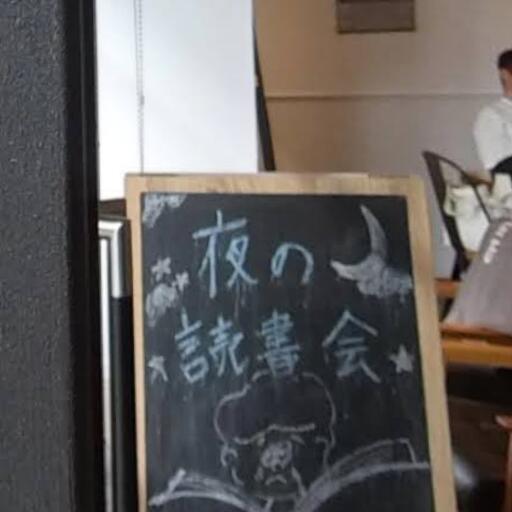 夜の
読書会